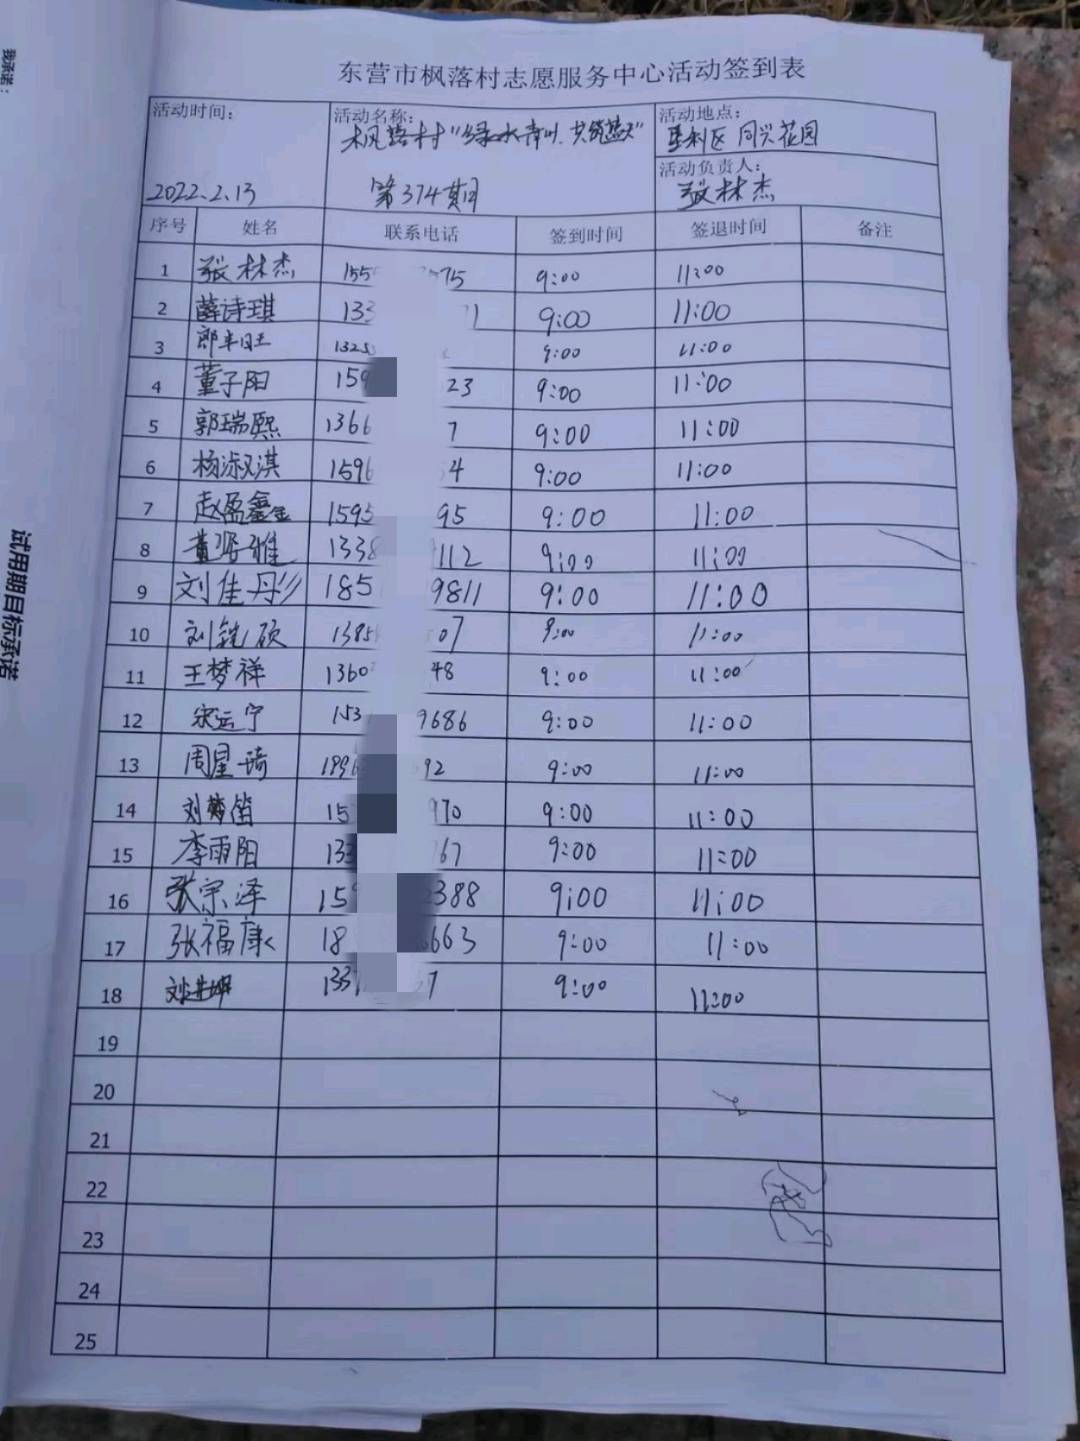 我承诺：
试用期目标承诺
东营市枫落村志愿服务中心活动签到表
活动时间： 活动名称： 活动地点：
枫落村“绿水青山，共筑蓝天” 垦利区 同兴花园
活动负责人：
2022.2.13 第374期 张林杰
序号 姓名 联系电话 签到时间 签退时间 备注
1 张林杰 155 75 9:00 11:00
2 薛诗琪 133 71 9:00 11:00
3 郎丰旺 1325 9:00 11:00
4 董子阳 159 23 9:00 11:00
5 郭瑞熙 1366 7 9:00 11:00
6 杨淑淇 1596 4 9:00 11:00
7 赵盈鑫 1595 95 9:00 11:00
8 黄贤雅 1338 112 9:00 11:00
9 刘佳彤 185 9811 9:00 11:00
10 刘铠硕 1385 07 9:00 11:00
11 王梦祥 1360 48 9:00 11:00
12 宋运宁 153 9686 9:00 11:00
13 周星琦 189 92 9:00 11:00
14 刘梦笛 15 970 9:00 11:00
15 李雨阳 133 67 9:00 11:00
16 张宗泽 159 388 9:00 11:00
17 张福康 18 6663 9:00 11:00
18 133 7 9:00 11:00
19
20
21
22
23
24
25